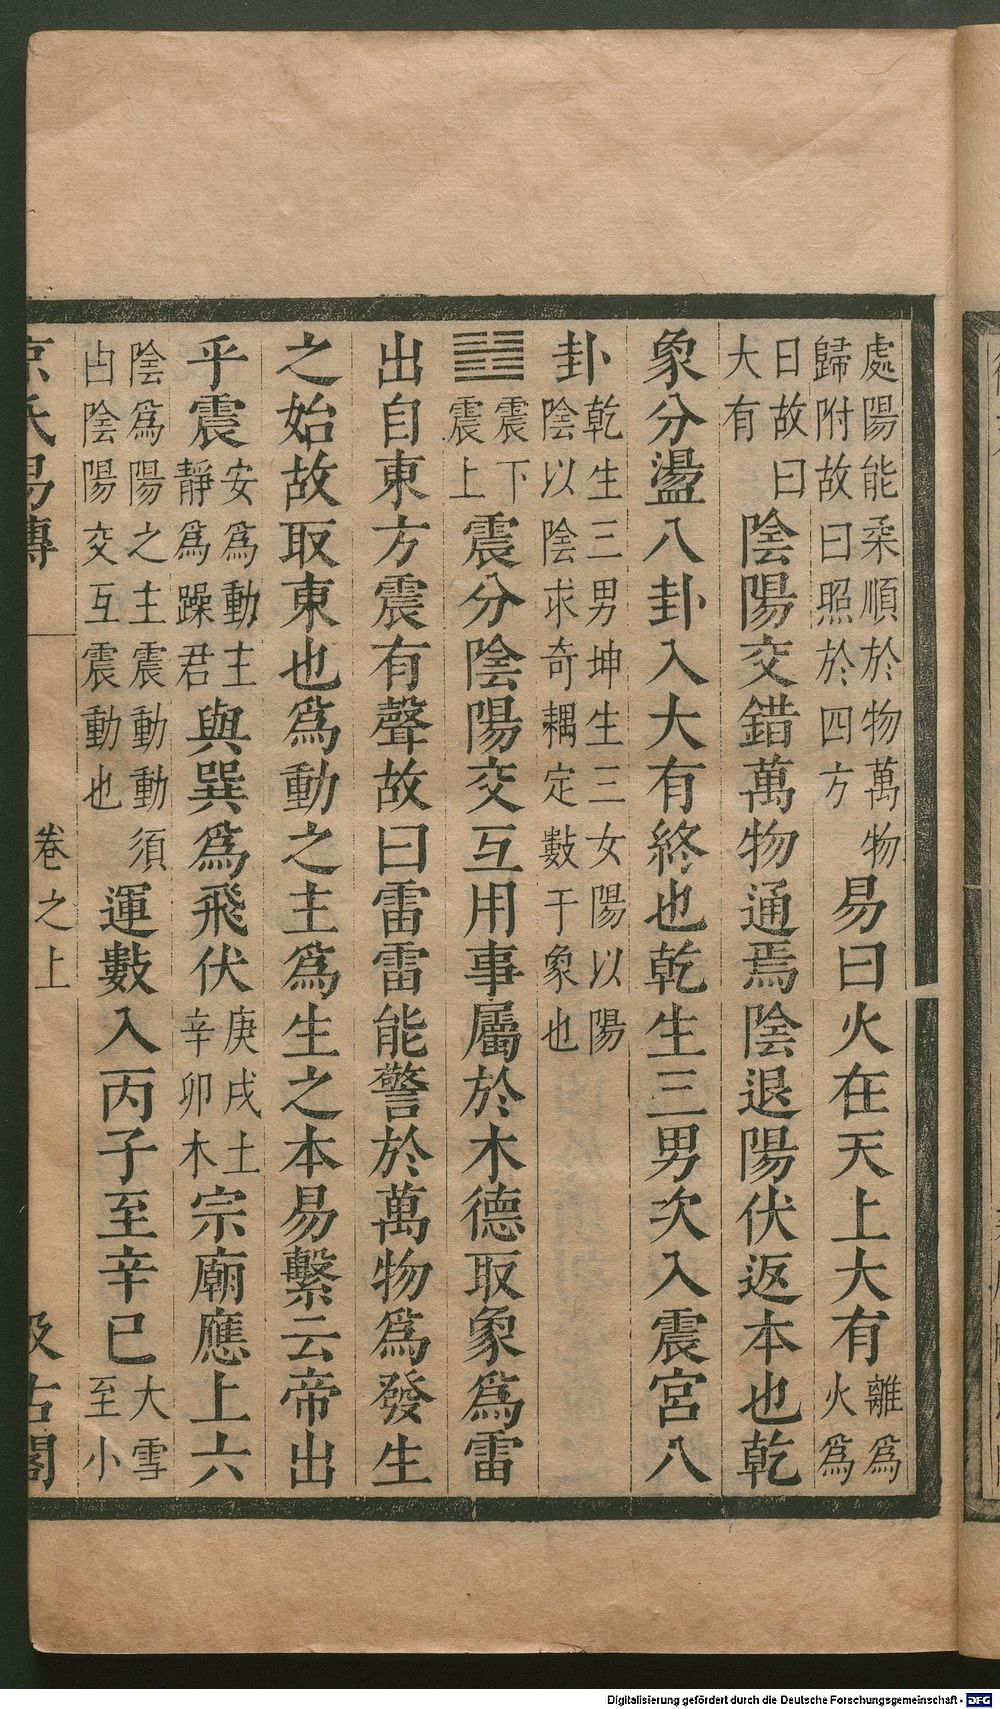 處陽能柔順於物萬物
歸附故曰照於四方
易曰火在天上大有
離爲
火爲
日故曰
大有
陰陽交錯萬物通焉陰退陽伏返本也乾
象分盪八卦入大有終也乾生三男次入震宮八
卦
乾生三男坤生三女陽以陽
陰以陰求奇耦定數于象也
䷲
震下
震上
震分陰陽交互用事屬於木德取象爲雷
出自東方震有聲故曰雷雷能警於萬物爲發生
之始故取東也爲動之主爲生之本易繫云帝出
乎震
安爲動主
靜爲躁君
與巽爲飛伏
庚戌土
辛卯木
宗廟應上六
陰爲陽之主震動動須
由陰陽交互震動也
運數入丙子至辛巳
大雪
至小
京氏易傳
卷之上
汲古閣
Digitalisierung gefördert durch die Deutsche Forschungsgemeinschaft - DFG